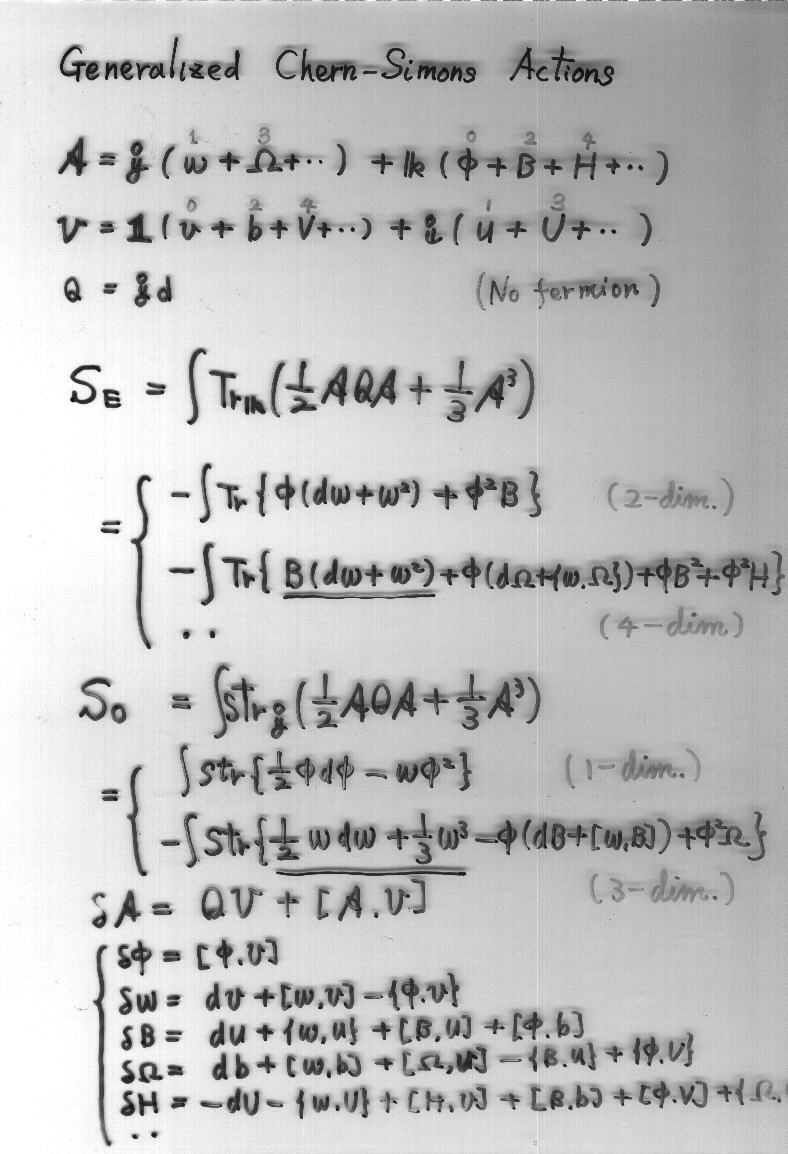 Generalized Chern-Simons Actions
1 3 0 2 4
A = j ( ω + Ω + ·· ) + k ( φ + B + H + ·· )
0 2 4 1 3
V = 1 ( v + b + V + ·· ) + i ( u + U + ·· )
Q = j d (No fermion)
S_E = ∫ Tr_k ( 1/2 AQA + 1/3 A³ )
= { - ∫ Tr { φ(dω+ω²) + φ²B } (2-dim.)
- ∫ Tr { B(dω+ω²) + φ(dΩ+{ω.Ω}) + φB² + φ²H }
·· (4-dim)
S_O = ∫ Str_j ( 1/2 AQA + 1/3 A³ )
= { ∫ Str { 1/2 φdφ - ωφ² } (1-dim.)
- ∫ Str { 1/2 ωdω + 1/3 ω³ - φ(dB+[ω,B]) + φ²Ω }
(3-dim.)
δA = QV + [A.V]
δφ = [φ.v]
δω = dv + [ω,v] - {φ.u}
δB = du + {ω,u} + [B,v] + [φ.b]
δΩ = db + [ω,b] + [Ω,v] - {B.u} + {φ.U}
δH = -dU - {ω.U} + [H,v] + [B.b] + [φ.V] + {Ω.
··